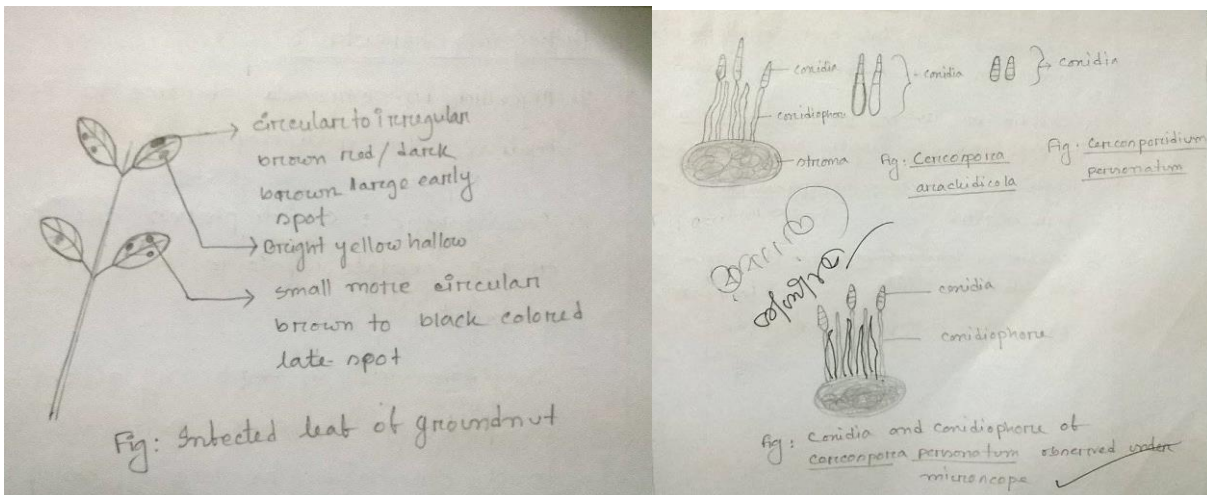 circular to irregular
brown red/dark
brown large early
spot
Bright yellow hallow
small more circular
brown to black colored
late spot
Fig: Infected leaf of groundnut
conidia
conidia
conidia
conidiophore
stroma
Fig: Cercosporea
arachidicola
Fig: Cercosporidium
personatum
conidia
conidiophore
Fig: Conidia and conidiophore of
cercosporea personatum observed under
microscope